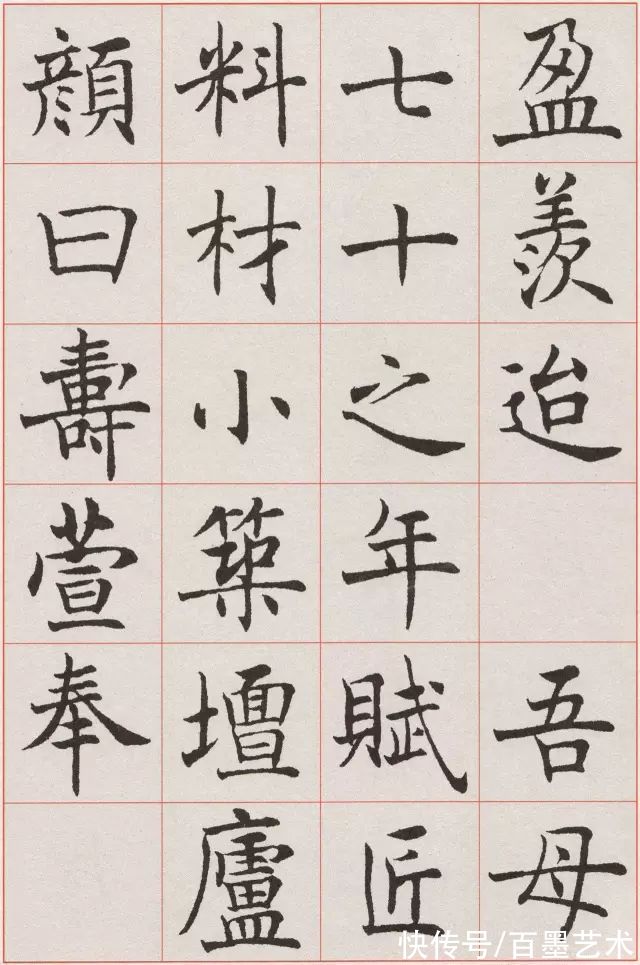 盈羨迨 吾母
七十之年賦匠
料材小築壇廬
顏曰壽萱奉
快传号/百墨艺术